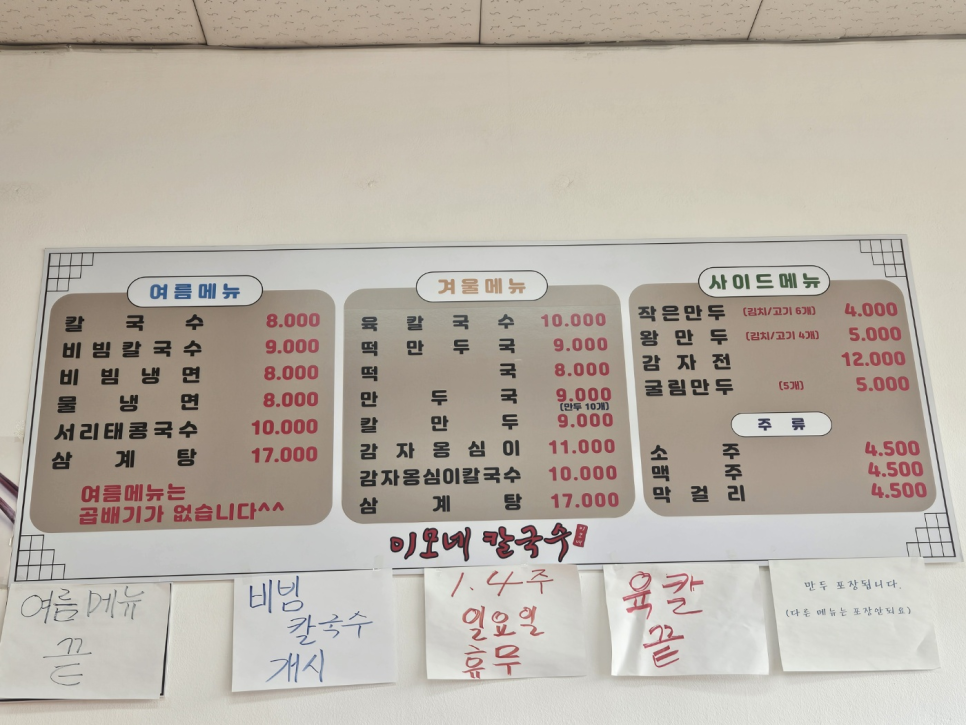 여름메뉴
칼국수 8.000
비빔칼국수 9.000
비빔냉면 8.000
물냉면 8.000
서리태콩국수 10.000
삼계탕 17.000
여름메뉴는
곱배기가 없습니다^^
겨울메뉴
육칼국수 10.000
떡만두국 9.000
떡국 8.000
만두국 9.000
(만두 10개)
칼만두 9.000
감자옹심이 11.000
감자옹심이칼국수 10.000
삼계탕 17.000
사이드메뉴
작은만두 (김치/고기 6개) 4.000
왕만두 (김치/고기 4개) 5.000
감자전 12.000
굴림만두 (5개) 5.000
주류
소주 4.500
맥주 4.500
막걸리 4.500
이모네 칼국수
여름메뉴
끝
비빔
칼국수
개시
1.4주
일요일
휴무
육칼
끝
만두 포장됩니다.
(다른 메뉴는 포장안되요)